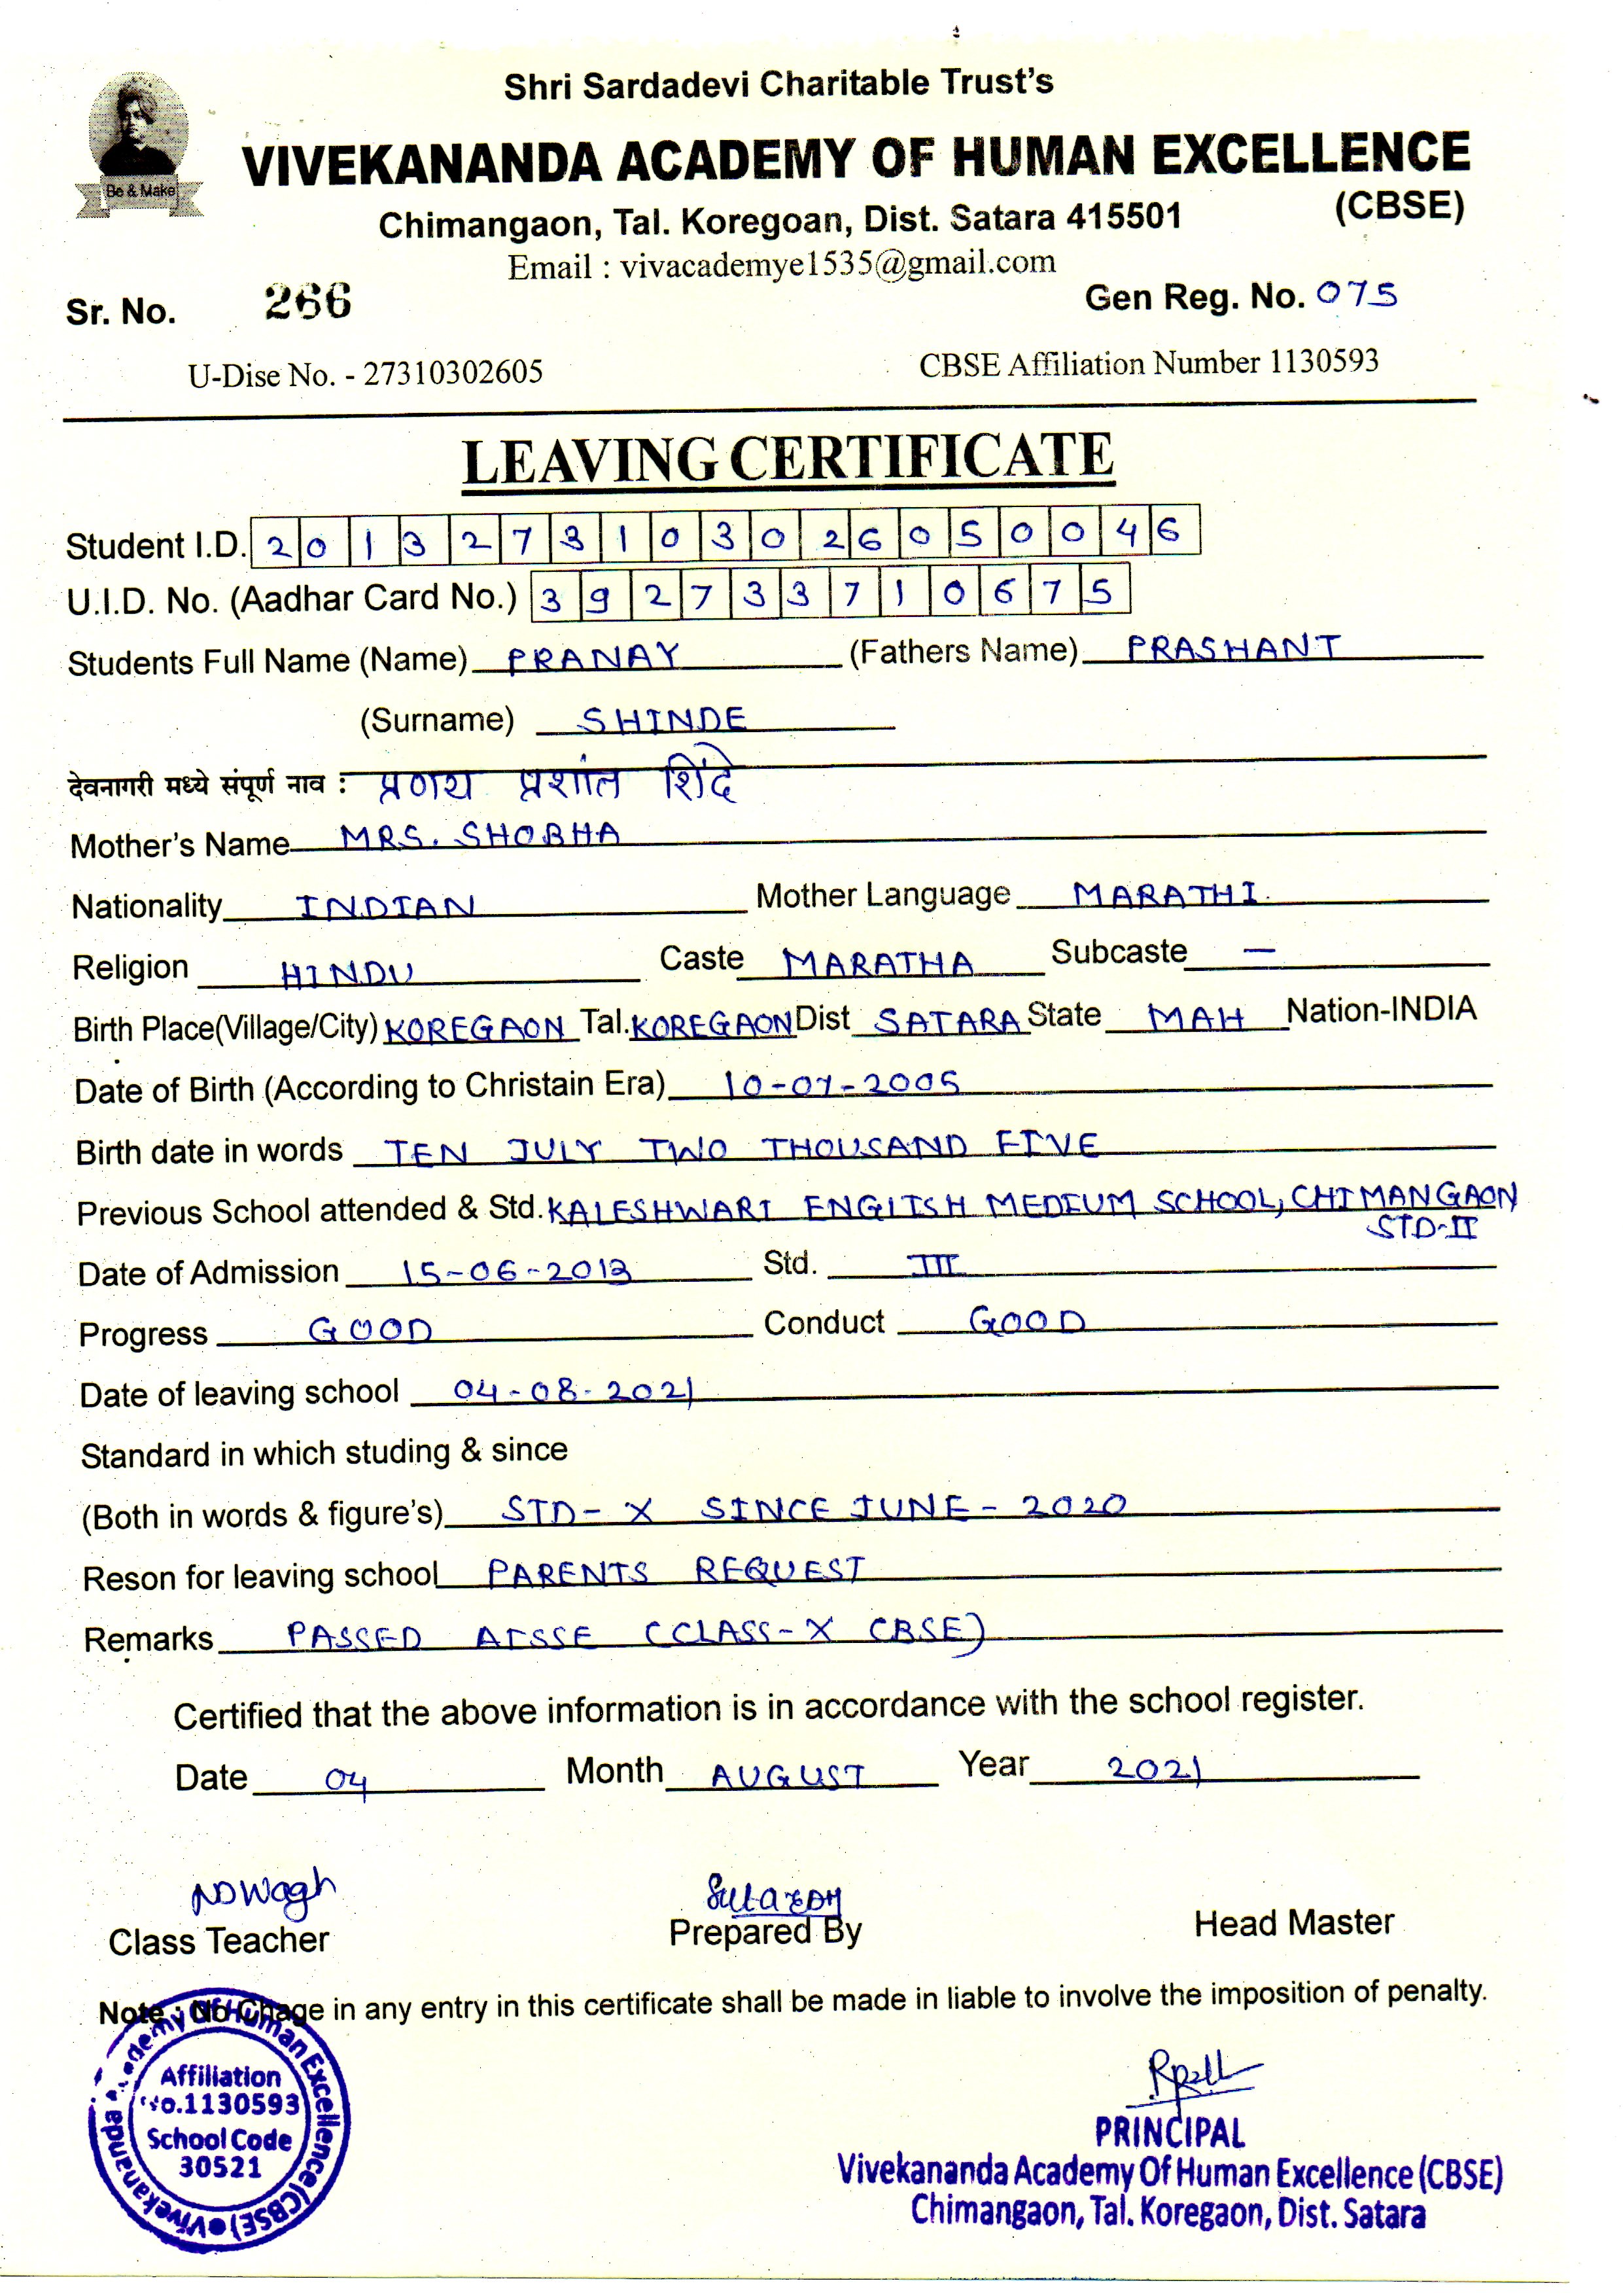 Shri Sardadevi Charitable Trust's
VIVEKANANDA ACADEMY OF HUMAN EXCELLENCE
(CBSE)
Be & Make
Chimangaon, Tal. Koregoan, Dist. Satara 415501
Email : vivacademye1535@gmail.com
Sr. No. 266 Gen Reg. No. 075
U-Dise No. - 27310302605 CBSE Affiliation Number 1130593
LEAVING CERTIFICATE
Student I.D. 2013273103026050046
U.I.D. No. (Aadhar Card No.) 392733710675
Students Full Name (Name) PRANAY (Fathers Name) PRASHANT
(Surname) SHINDE
देवनागरी मध्ये संपूर्ण नाव : प्रणय प्रशांत शिंदे
Mother's Name MRS. SHOBHA
Nationality INDIAN Mother Language MARATHI.
Religion HINDU Caste MARATHA Subcaste —
Birth Place(Village/City) KOREGAON Tal. KOREGAON Dist SATARA State MAH Nation-INDIA
Date of Birth (According to Christain Era) 10-07-2005
Birth date in words TEN JULY TWO THOUSAND FIVE
Previous School attended & Std. KALESHWARI ENGLISH MEDIUM SCHOOL, CHIMANGAON
STD-II
Date of Admission 15-06-2013 Std. III
Progress GOOD Conduct GOOD
Date of leaving school 04-08-2021
Standard in which studing & since
(Both in words & figure's) STD- X SINCE JUNE - 2020
Reson for leaving school PARENTS REQUEST
Remarks PASSED AISSE (CLASS-X CBSE)
Certified that the above information is in accordance with the school register.
Date 04 Month AUGUST Year 2021
NDWagh
Class Teacher Prepared By Head Master
Note : No Chage in any entry in this certificate shall be made in liable to involve the imposition of penalty.
Vivekananda Academy Of Human Excellence (CBSE)
Affiliation
No.1130593
School Code
30521
PRINCIPAL
Vivekananda Academy Of Human Excellence (CBSE)
Chimangaon, Tal. Koregaon, Dist. Satara